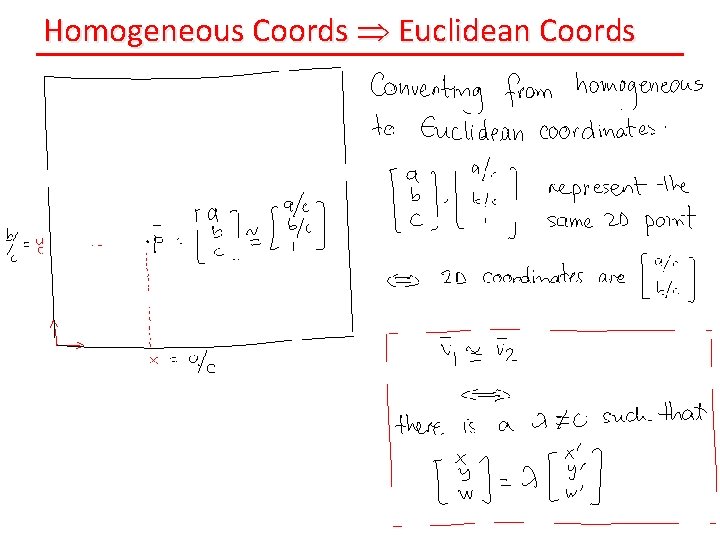 Homogeneous Coords ⇒ Euclidean Coords
Converting from homogeneous
to Euclidean coordinates.
[a b c], [a/c b/c 1] represent the
same 2D point
⟺ 2D coordinates are [a/c b/c]
b/c =
p̄ = [a b c] ≅ [a/c b/c 1]
x = a/c
v̄1 ≅ v̄2
⟺
there is a λ≠0 such that
[x y w] = λ [x' y' w']